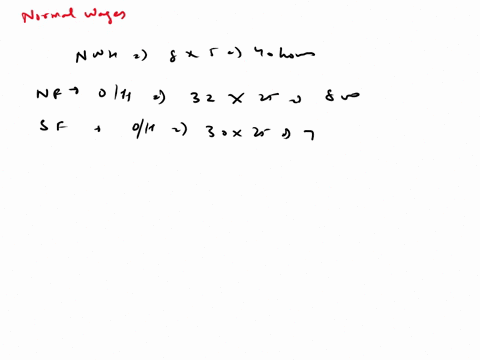 Normal Wages
NWH => 8 x 5 => 40 hours
NF → O/H => 32 X 25 => 800
SF → O/H => 30 x 25 => 7